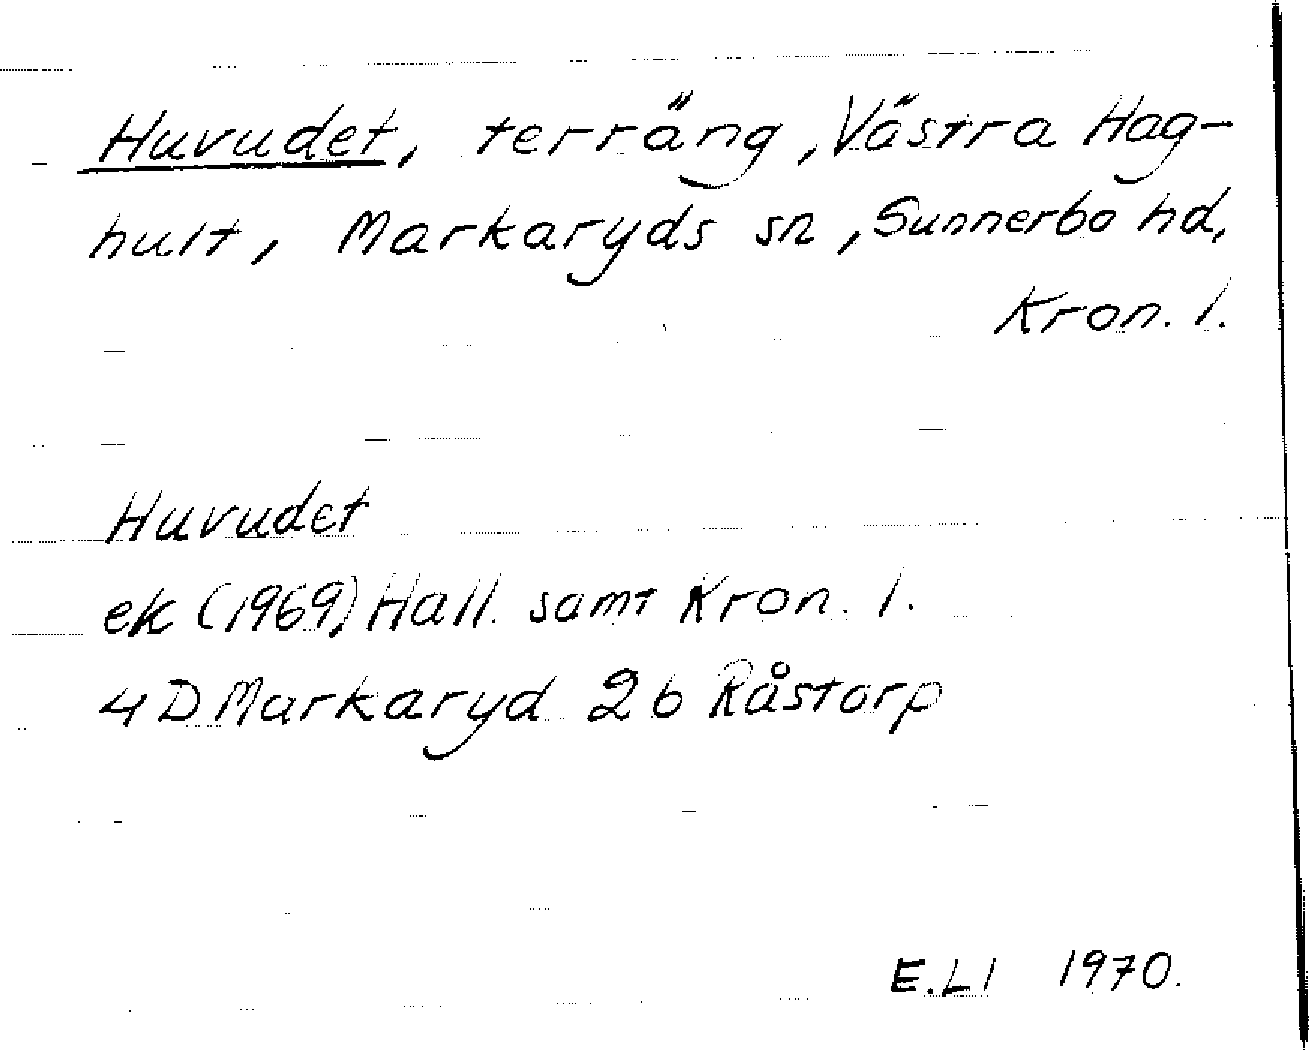 Huvudet, terräng, Västra Hag-
hult, Markaryds sn, Sunnerbo hd,
Kron. l.
Huvudet
ek (1969) Hall. samt Kron. l.
4D Markaryd 2b Råstorp
E.L l 1970.